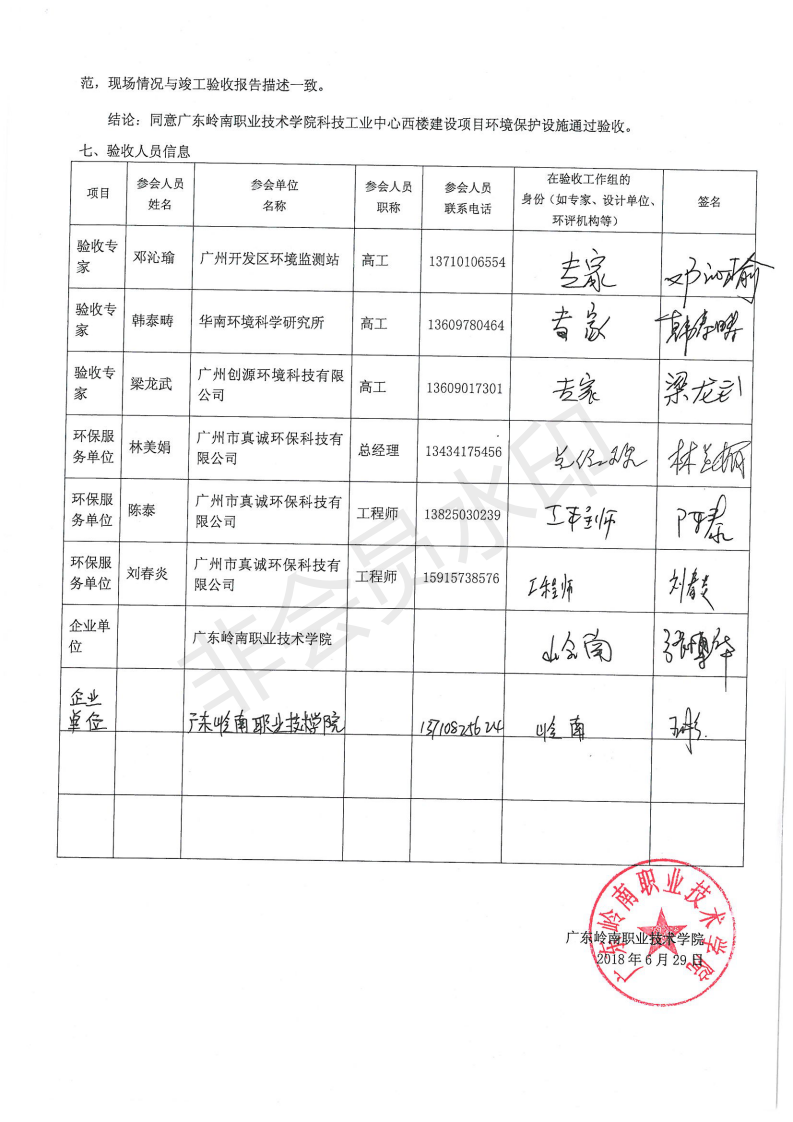 范，现场情况与竣工验收报告描述一致。
结论：同意广东岭南职业技术学院科技工业中心西楼建设项目环境保护设施通过验收。
七、验收人员信息
项目 参会人员 姓名 参会单位 名称 参会人员 职称 参会人员 联系电话 在验收工作组的 身份（如专家、设计单位、 环评机构等） 签名
验收专家 邓沁瑜 广州开发区环境监测站 高工 13710106554 专家 邓沁瑜
验收专家 韩泰畴 华南环境科学研究所 高工 13609780464 专家 韩泰畴
验收专家 梁龙武 广州创源环境科技有限公司 高工 13609017301 专家 梁龙武
环保服务单位 林美娟 广州市真诚环保科技有限公司 总经理 13434175456 林美娟
环保服务单位 陈泰 广州市真诚环保科技有限公司 工程师 13825030239 工程师 陈泰
环保服务单位 刘春炎 广州市真诚环保科技有限公司 工程师 15915738576 工程师 刘春炎
企业单位 广东岭南职业技术学院 岭南
企业单位 广东岭南职业技术学院 岭南
广东岭南职业技术学院
2018年6月29日
广东岭南职业技术学院
非会员水印